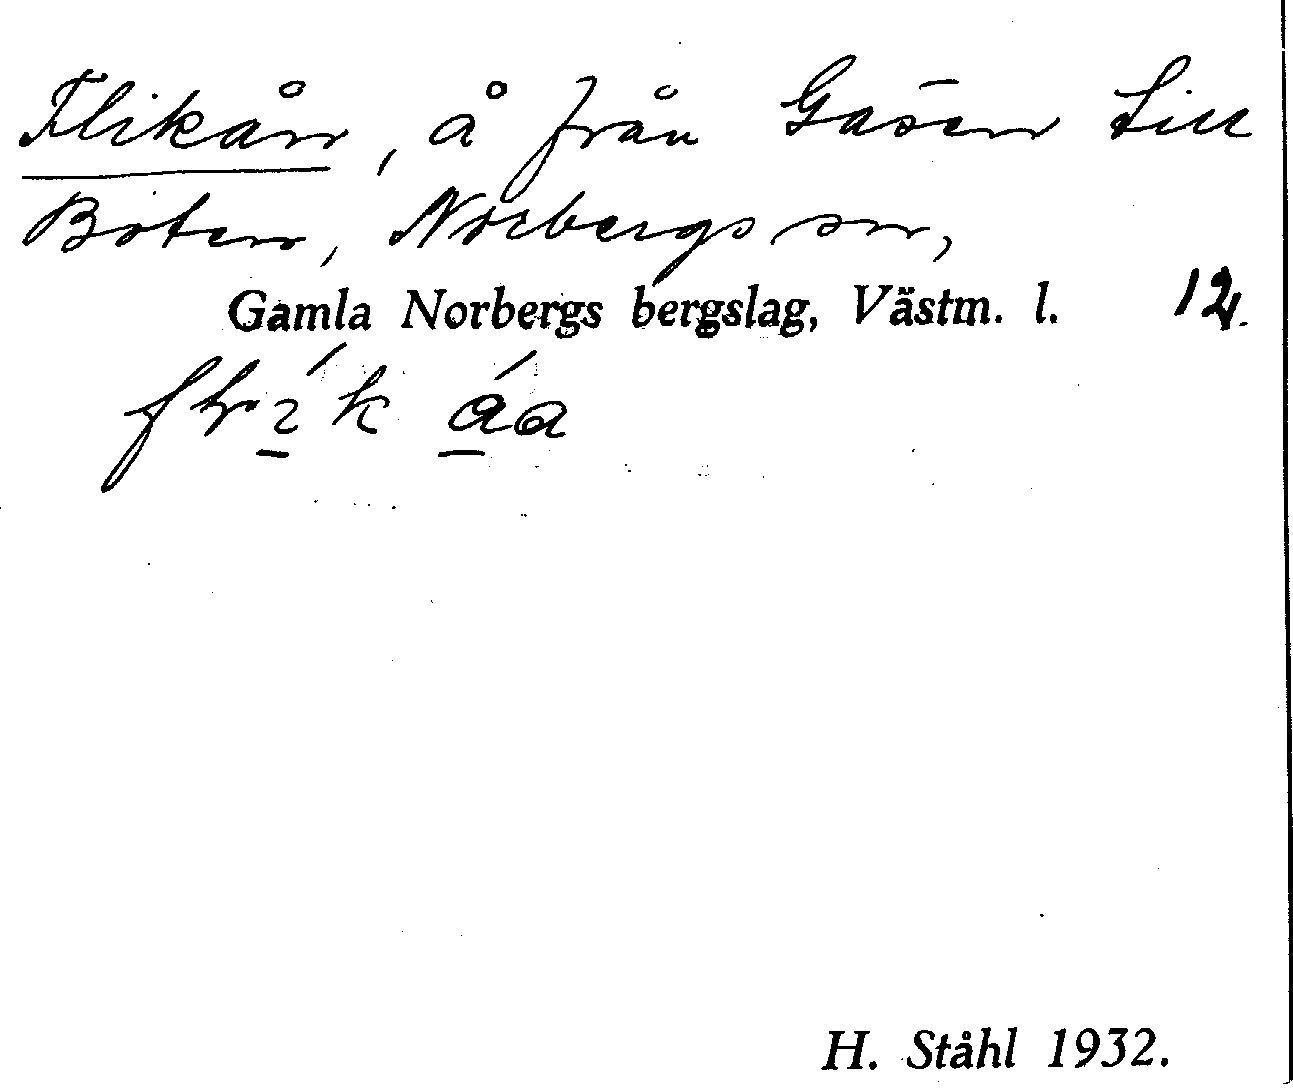 Flikån, å från Gäsen till
Boten, Norbergs sn,
Gamla Norbergs bergslag, Västm. l. 12.
H. Ståhl 1932.